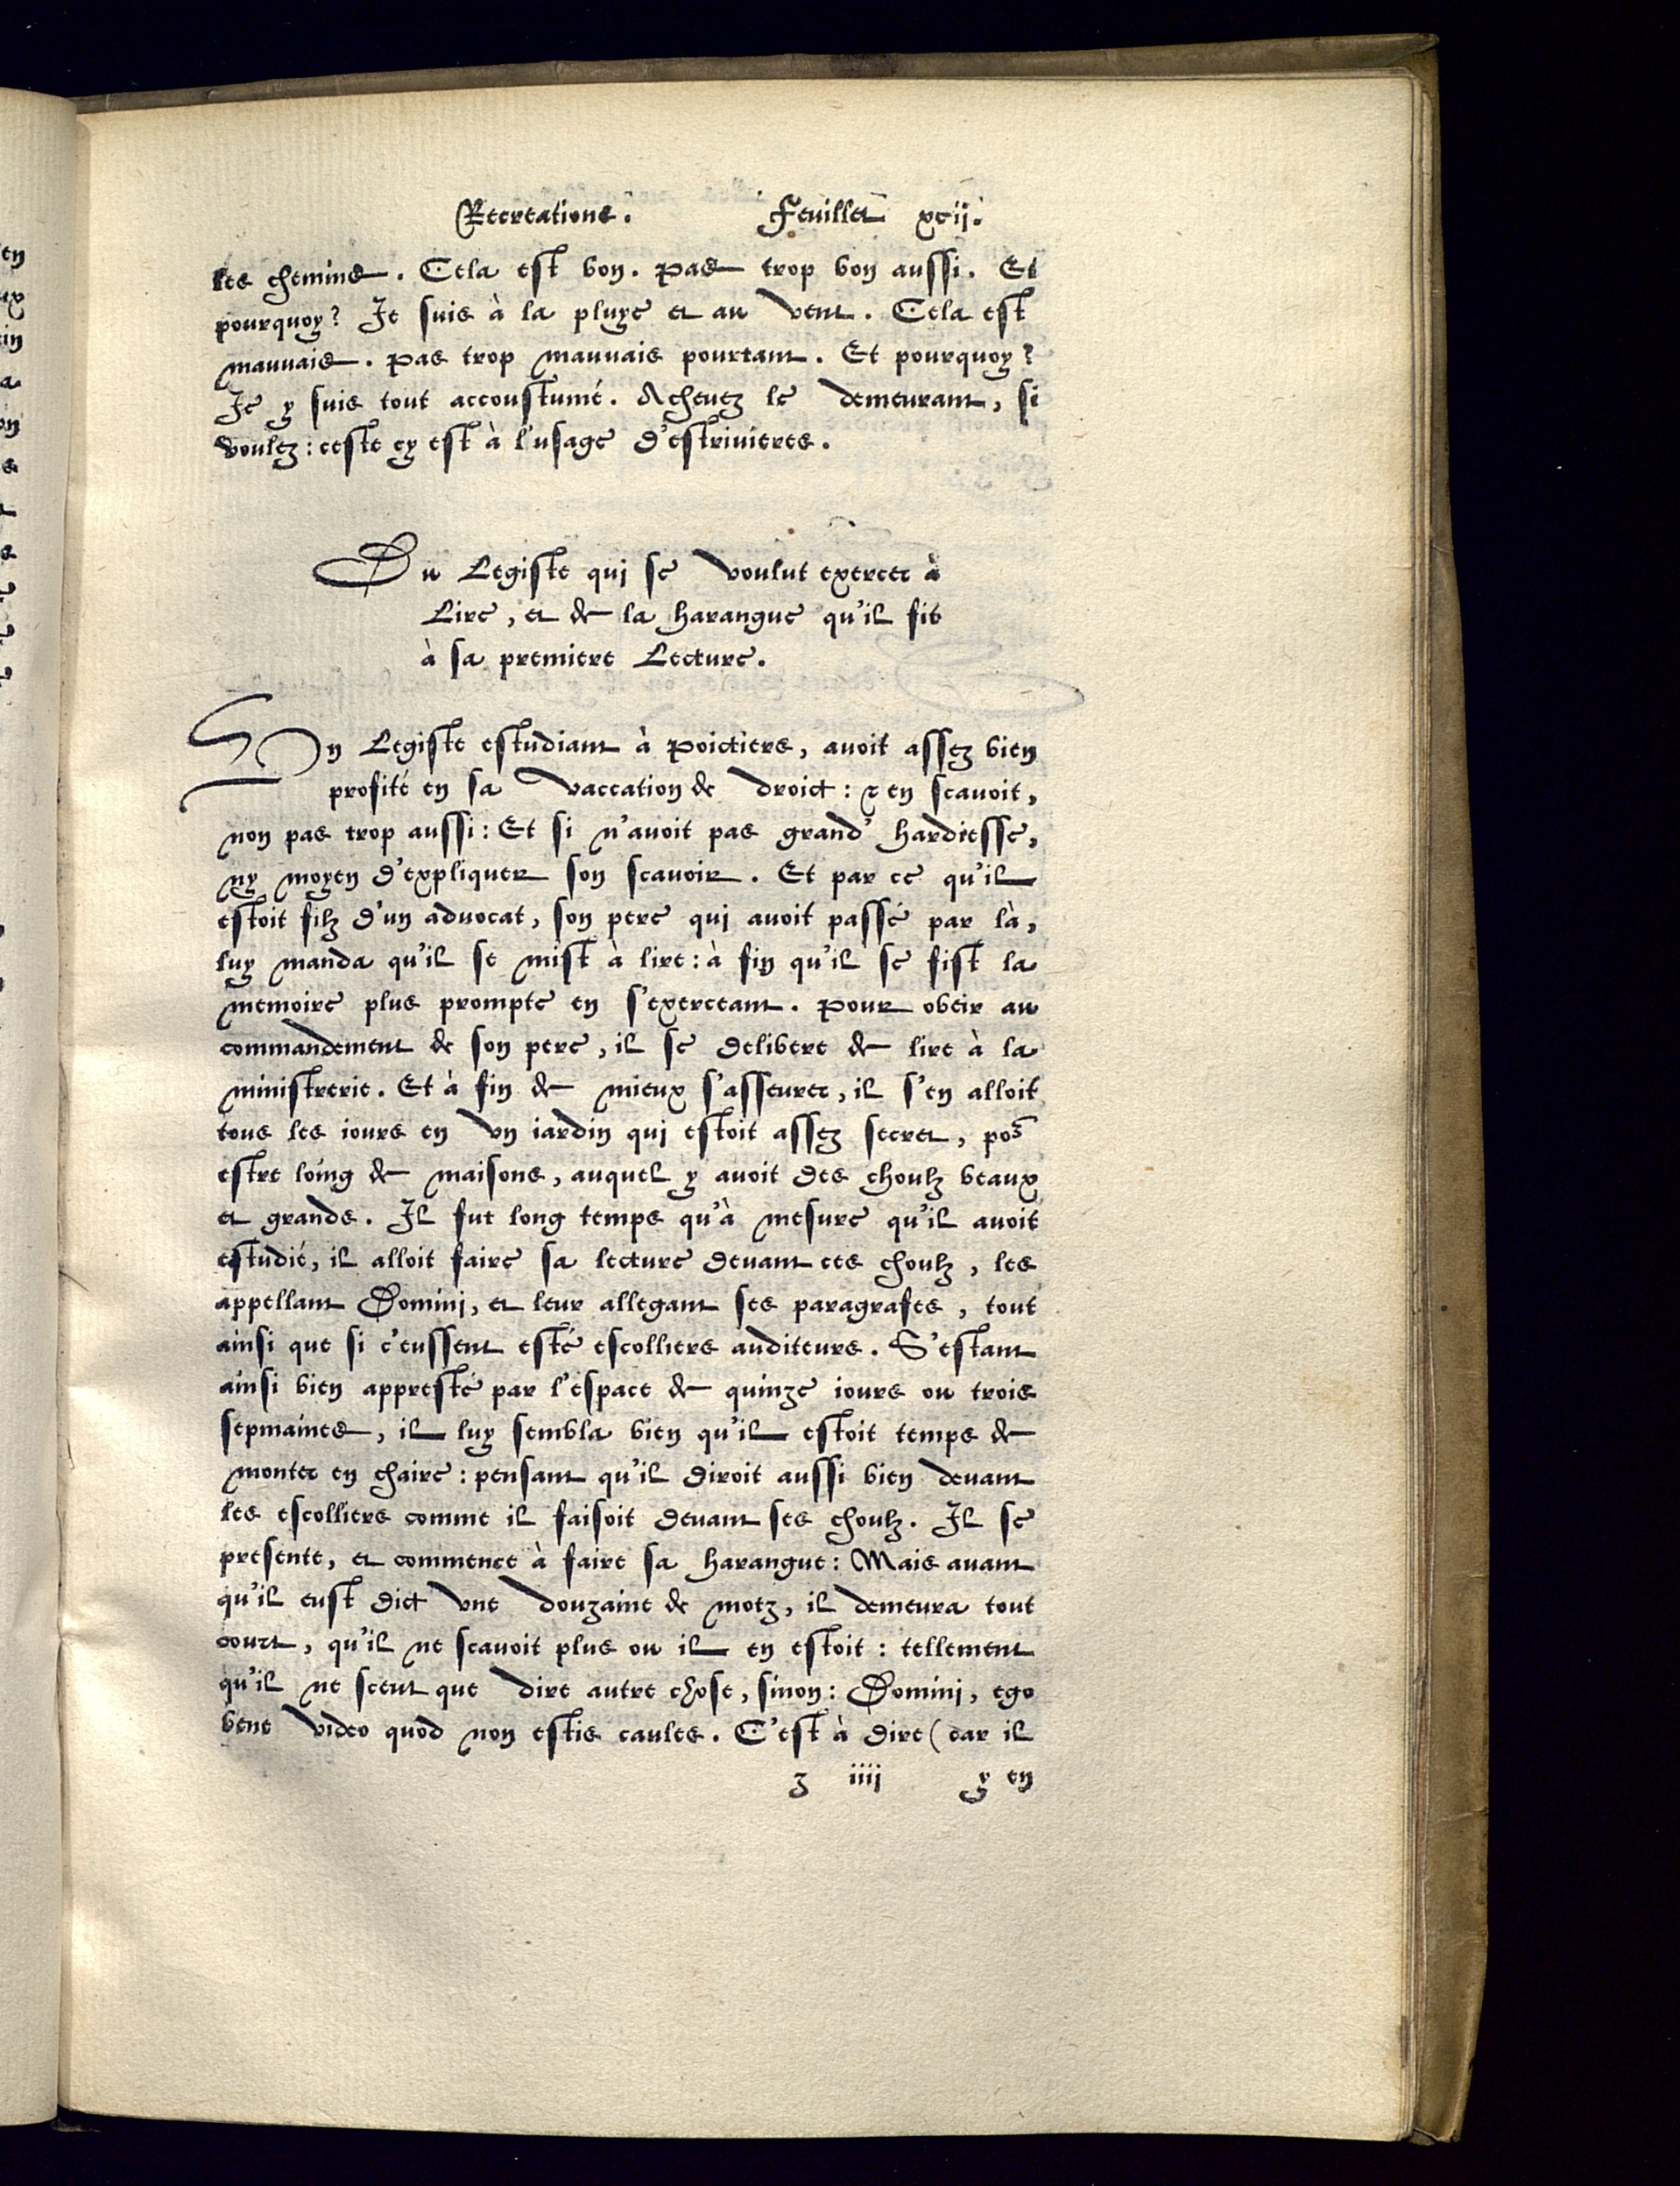 Recreations. Feuillet xcij.
les chemins. Cela est bon. Pas trop bon aussi. Et
pourquoy? Je suis à la pluye et au vent. Cela est
mauvais. Pas trop mauvais pourtant. Et pourquoy?
Je y suis tout accoustumé. Achevez le demeurant, si
voulez: ceste cy est à l'usage d'estrivieres.
Du Legiste qui se voulut exercer à
Lire, et de la harangue qu'il fit
à sa premiere Lecture.
Un Legiste estudiant à Poictiers, avoit assez bien
profité en sa vaccation de droict: & en scavoit,
non pas trop aussi: Et si n'avoit pas grand' hardiesse,
ny moyen d'expliquer son scavoir. Et par ce qu'il
estoit filz d'un advocat, son pere qui avoit passé par là,
luy manda qu'il se mist à lire: à fin qu'il se fist la
memoire plus prompte en s'exerceant. Pour obeir au
commandement de son pere, il se delibere de lire à la
ministrerie. Et à fin de mieux s'asseurer, il s'en alloit
tous les iours en vn iardin qui estoit assez secret, por̃
estre loing de maisons, auquel y avoit des choulz beaux
et grands. Il fut long temps qu'à mesure qu'il avoit
estudié, il alloit faire sa lecture devant ces choulz, les
appellant Domini, et leur allegant ses paragrafes, tout
ainsi que si c'eussent esté escolliers auditeurs. S'estant
ainsi bien appresté par l'espace de quinze iours ou trois
sepmaines, il luy sembla bien qu'il estoit temps de
monter en chaire: pensant qu'il diroit aussi bien devant
les escolliers comme il faisoit devant ses choulz. Il se
presente, et commence à faire sa harangue: Mais avant
qu'il eust dict vne douzaine de motz, il demeura tout
court, qu'il ne scavoit plus ou il en estoit: tellement
qu'il ne sceut que dire autre chose, sinon: Domini, ego
bene video quod non estis caules. C'est à dire (car il
z iiij y en